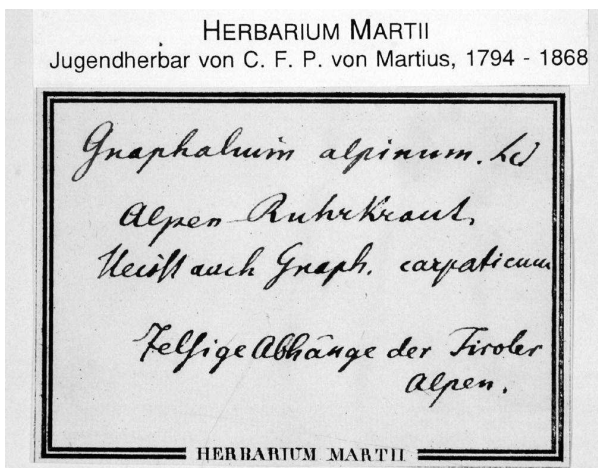 HERBARIUM MARTII
Jugendherbar von C. F. P. von Martius, 1794 - 1868
Gnaphalium alpinum.
Alpen-Ruhrkraut.
Heisst auch Gnaph. carpaticum
Felsige Abhänge der Tiroler
Alpen.
HERBARIUM MARTII